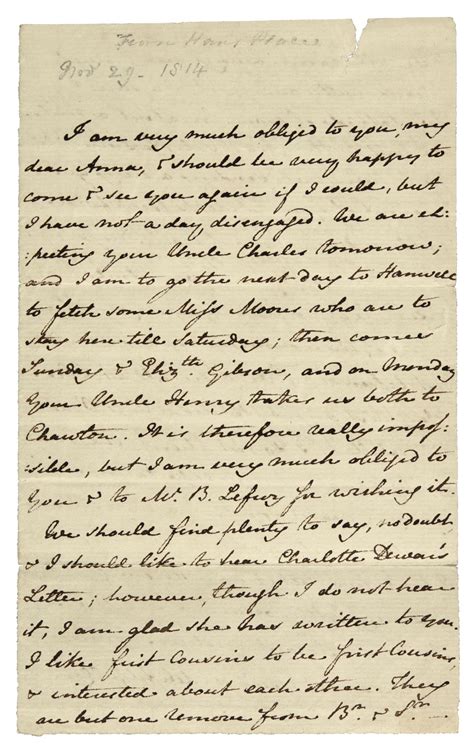 From Hans Place
Nov 29. 1814
I am very much obliged to you, my
dear Anna, & should be very happy to
come & see you again if I could, but
I have not a day disengaged. We are ex-
:pecting your Uncle Charles tomorrow;
and I am to go the next day to Hanwell
to fetch some Miss Moores who are to
stay here till Saturday; then comes
Sunday & Eliz:th Gibson, and on Monday
your Uncle Henry takes us both to
Chawton. It is therefore really impos-
:sible, but I am very much obliged to
You & to Mr. B. Lefroy for wishing it.
We should find plenty to say, no doubt
& I should like to hear Charlotte Dewar's
Letter; however, though I do not hear
it, I am glad she has written to you.
I like first Cousins to be first Cousins,
& interested about each other. They
are but one remove from Br. & Sr.